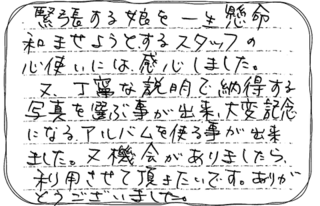 緊張する娘を一生懸命
和ませようとするスタッフの
心使いには、感心しました。
又、丁寧な説明で、納得する
写真を選ぶ事が出来、大変記念
になる、アルバムを作る事が出来
ました。又機会がありましたら、
利用させて頂きたいです。ありが
とうございました。